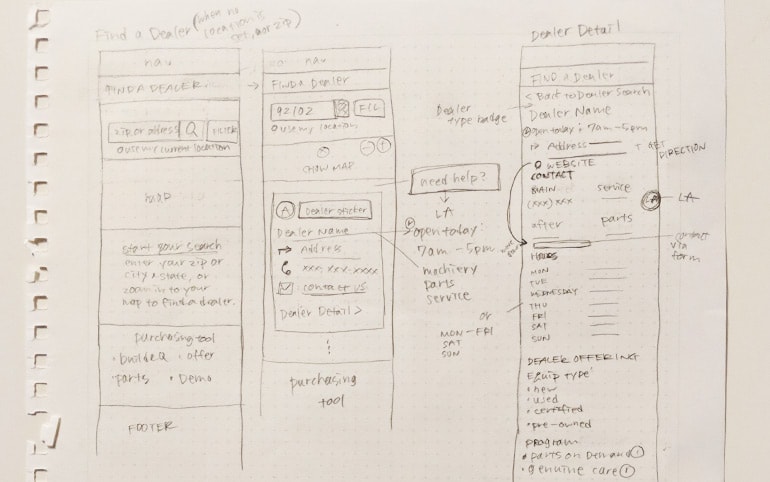 Find a Dealer (when no
location is
set, or zip)
nav
FIND A DEALER
zip or address
use my current location
map
start your search
enter your zip or
city & state, or
zoom in to your
map to find a dealer.
purchasing tool
• build & Q • offer
• parts • Demo
FOOTER
nav
FIND A Dealer
92102 FIL
use my location
SHOW MAP
A Dealer
Dealer Name
Address
xxx.xxx-xxxx
contact us
Dealer Detail >
purchasing
tool
need help?
LA
open today:
7am - 5pm
machiery
parts
service
or
MON - FRI
SAT
SUN
Dealer
type badge
Dealer Detail
FIND A Dealer
< Back to Dealer Search
Dealer Name
open today: 7am - 5pm
Address + GET
DIRECTION
WEBSITE
CONTACT
MAIN service
(xxx) xxx LA LA
after parts
contact
via
form
HOURS
MON
TUE
WEDNESDAY
THU
FRI
SAT
SUN
DEALER OFFERING
Equip type
• new
• used
• certified
• pre-owned
program
• parts on Demand
• genuine care